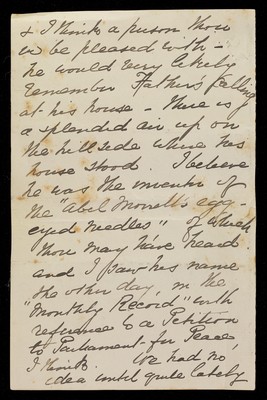 & I think a person thou
w'd be pleased with –
he would very likely
remember Father's falling
at his house – There is
a splendid air up on
the hill side where his
house stood. I believe
he was the inventor of
the "Abel Morrell's egg-
eyed needles" of which
thou may have heard
and I saw his name
the other day, in the
"Monthly Record" with
reference to a Petition
to Parliament for Peace
I think. We had no
idea until quite lately